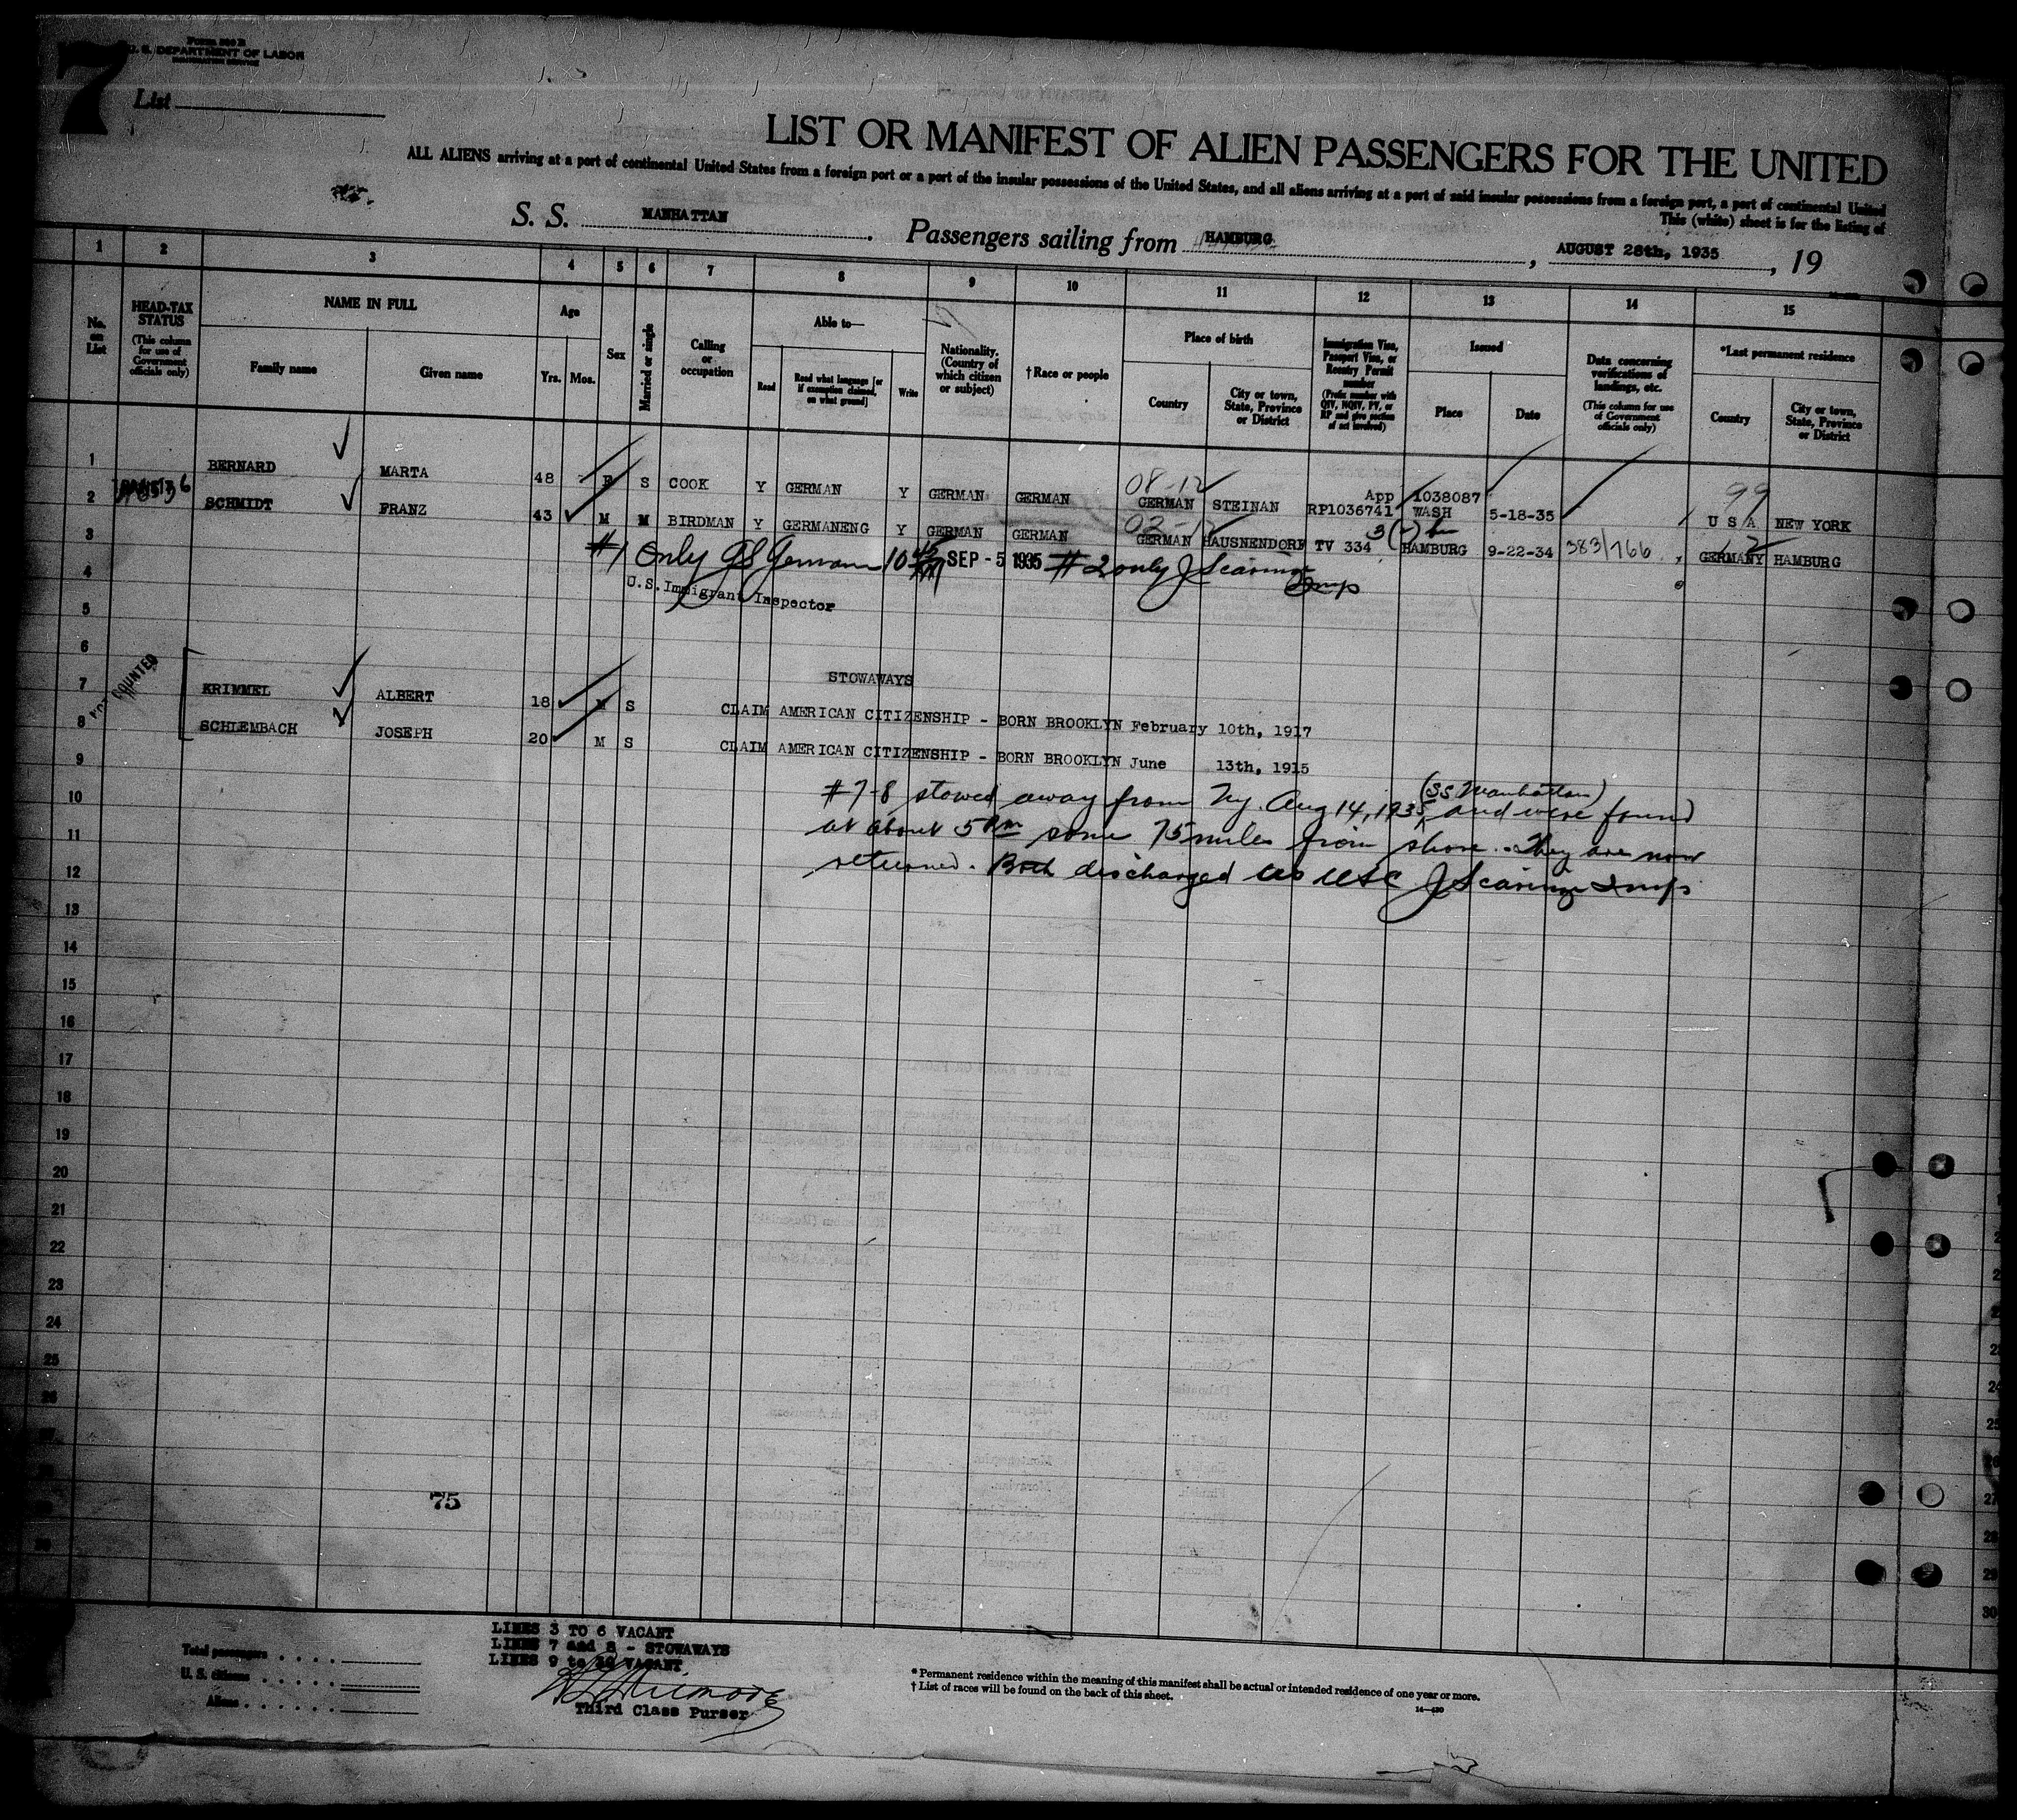 7
Form 500 B
U. S. DEPARTMENT OF LABOR
IMMIGRATION SERVICE
List
LIST OR MANIFEST OF ALIEN PASSENGERS FOR THE UNITED
ALL ALIENS arriving at a port of continental United States from a foreign port or a port of the insular possessions of the United States, and all aliens arriving at a port of said insular possessions from a foreign port, a port of continental United
This (white) sheet is for the listing of
S. S. MANHATTAN. Passengers sailing from HAMBURG, AUGUST 28th, 1935, 19
1 2 3 4 5 6 7 8 9 10 11 12 13 14 15
No. on List
HEAD-TAX STATUS
(This column for use of Government officials only)
NAME IN FULL
Family name
Given name
Age
Yrs. Mos.
Sex
Married or single
Calling or occupation
Able to—
Read
Read what language [or if exemption claimed, on what ground]
Write
Nationality. (Country of which citizen or subject)
†Race or people
Place of birth
Country
City or town, State, Province or District
Immigration Visa, Passport Visa, or Reentry Permit number
(Prefix number with QIV, NQIV, PV, or RP and give section of act involved)
Issued
Place
Date
Data concerning verifications of landings, etc.
(This column for use of Government officials only)
*Last permanent residence
Country
City or town, State, Province or District
08-12
App 1038087
99
1 BERNARD MARTA 48 F S COOK Y GERMAN Y GERMAN GERMAN GERMAN STEINAN RP1036741 WASH 5-18-35 U S A NEW YORK
02-12
2 SCHMIDT FRANZ 43 M M BIRDMAN Y GERMANENG Y GERMAN GERMAN GERMAN HAUSNENDORF TV 334 3(2) HAMBURG 9-22-34 383/766 GERMANY HAMBURG
3
#1 Only 10 45 AM SEP - 5 1935 #2 only J Scaringe Insp
4
U.S. Immigrant Inspector
5
6
STOWAWAYS
NOT COUNTED
7 KRIMMEL ALBERT 18 M S CLAIM AMERICAN CITIZENSHIP - BORN BROOKLYN February 10th, 1917
8 SCHLEMBACH JOSEPH 20 M S CLAIM AMERICAN CITIZENSHIP - BORN BROOKLYN June 13th, 1915
9
(SS Manhattan)
10 #7-8 stowed away from Ny. Aug 14, 1935, and were found
11 at about 5 Pm some 75 miles from shore. They are now
12 returned. Both discharged as USC J Scaringe Insp
13
14
15
16
17
18
19
20
21
22
23
24
25
26
75
LINES 3 TO 6 VACANT
LINES 7 and 8 - STOWAWAYS
LINES 9 to 30 VACANT
Third Class Purser
Total passengers
U. S. citizens
Aliens
* Permanent residence within the meaning of this manifest shall be actual or intended residence of one year or more.
† List of races will be found on the back of this sheet.
14—430